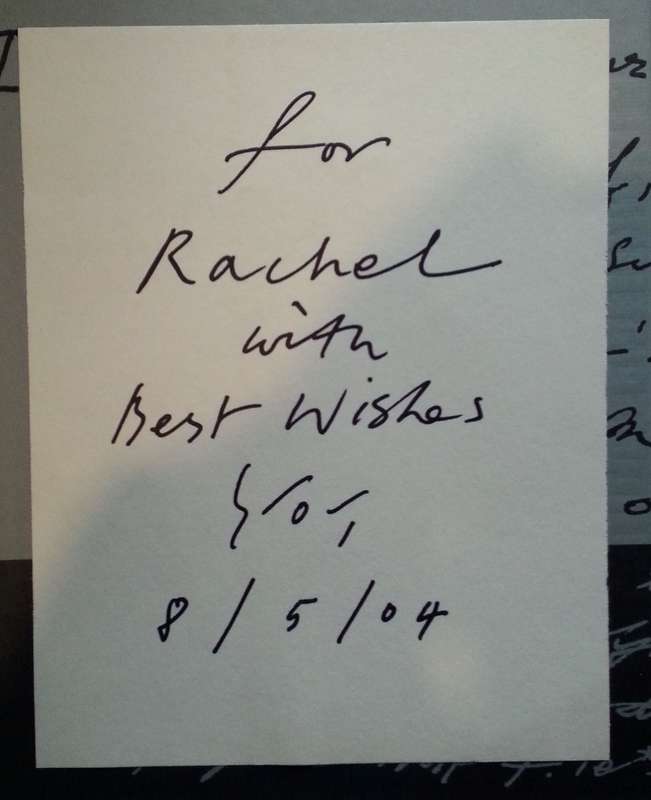 for
Rachel
with
Best Wishes
8/5/04